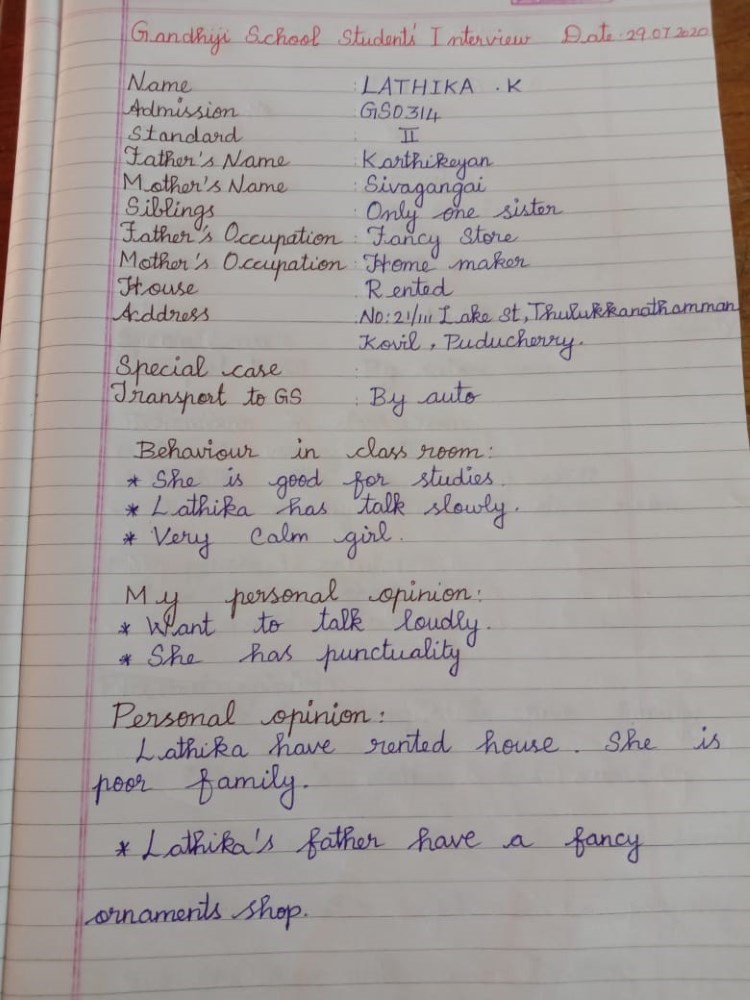 Gandhiji School Students' Interview Date: 29.07.2020
Name : LATHIKA . K
Admission : GS0314
Standard : II
Father's Name : Karthikeyan
Mother's Name : Sivagangai
Siblings : Only one sister
Father's Occupation : Fancy Store
Mother's Occupation : Home maker
House : Rented
Address : No: 21/111 Lake St, Thulukkanathamman
Kovil, Puducherry.
Special case :
Transport to GS : By auto
Behaviour in class room:
* She is good for studies.
* Lathika has talk slowly.
* Very calm girl.
My personal opinion:
* Want to talk loudly.
* She has punctuality
Personal opinion:
Lathika have rented house. She is
poor family.
* Lathika's father have a fancy
ornaments shop.